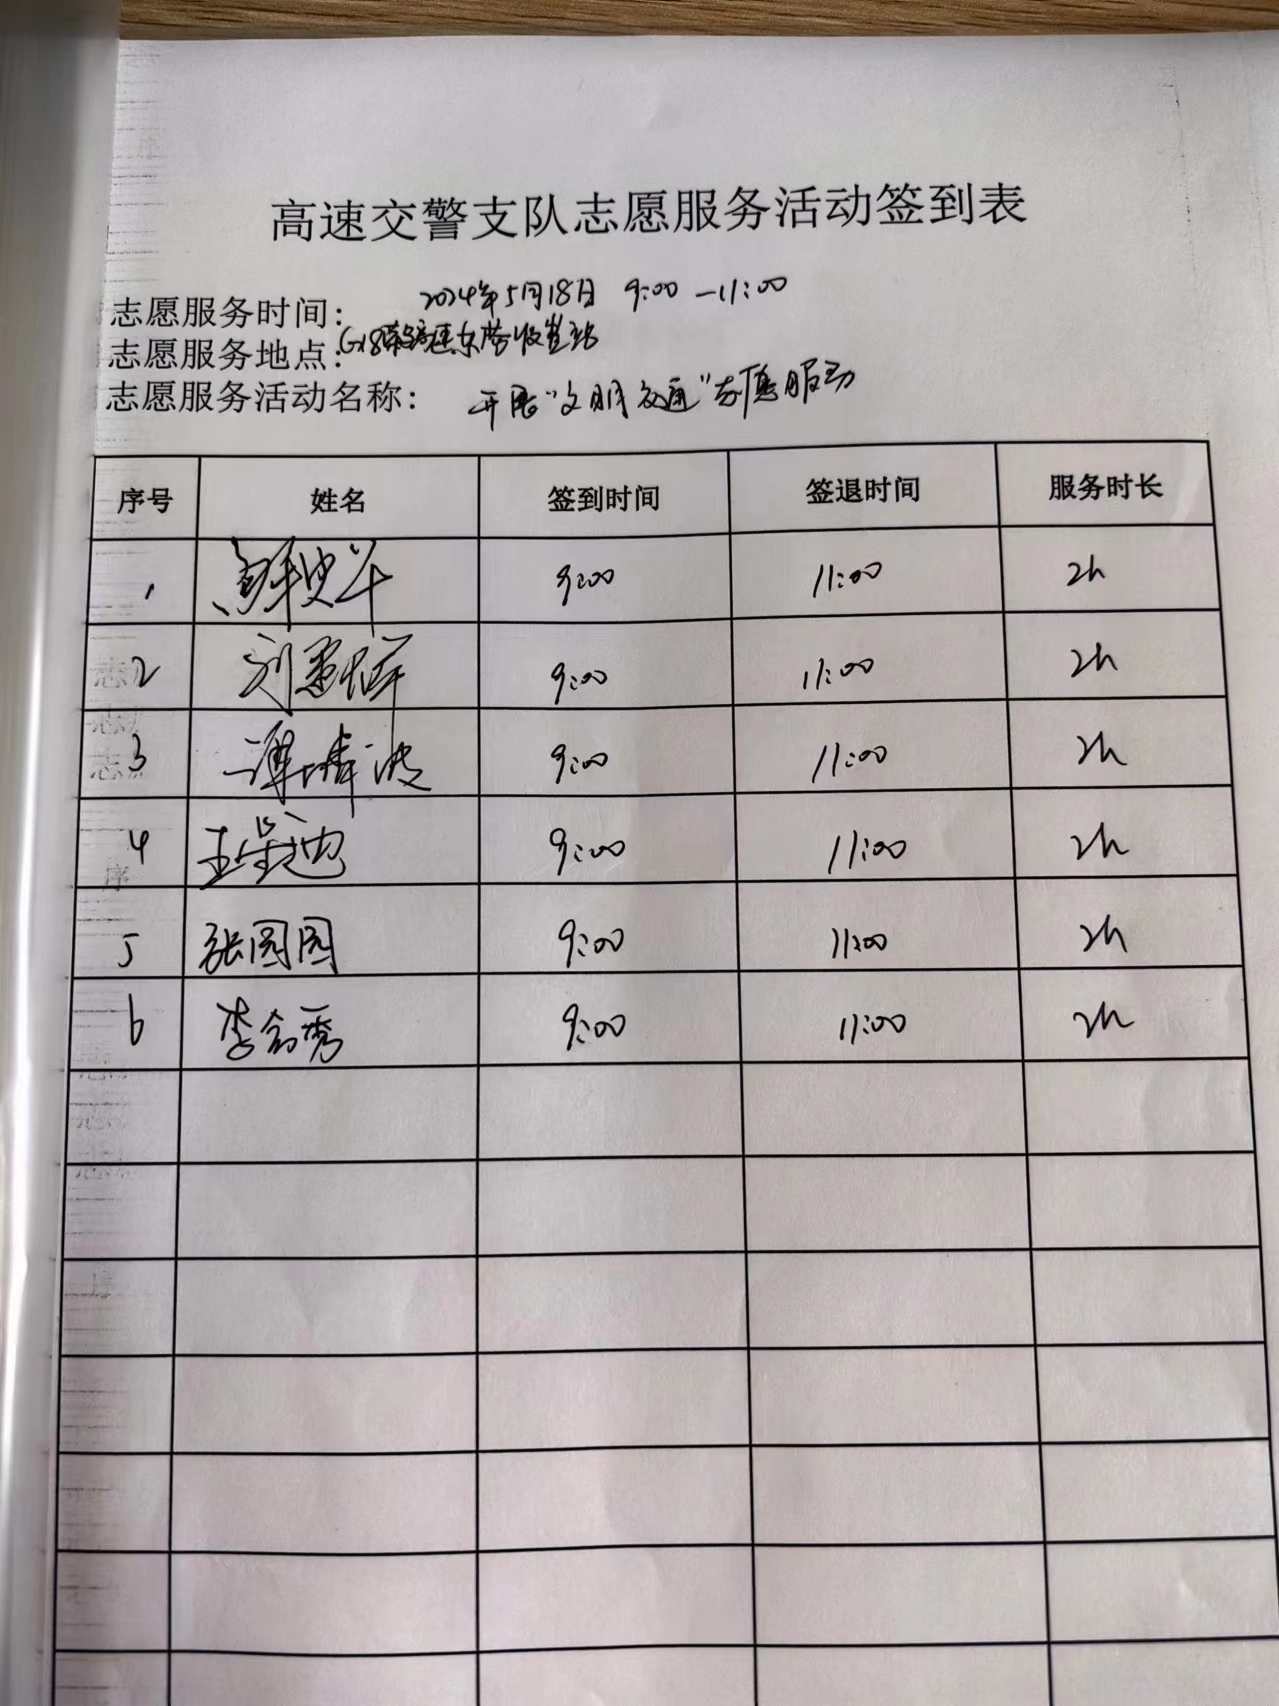 高速交警支队志愿服务活动签到表
志愿服务时间: 2024年5月18日 9:00-11:00
志愿服务地点: G18荣乌高速东营收费站
志愿服务活动名称: 开展"文明交通"志愿服动
序号 姓名 签到时间 签退时间 服务时长
1 9:00 11:00 2h
2 刘 9:00 11:00 2h
3 谭 波 9:00 11:00 2h
4 王 迪 9:00 11:00 2h
5 张圆圆 9:00 11:00 2h
6 李 秀 9:00 11:00 2h